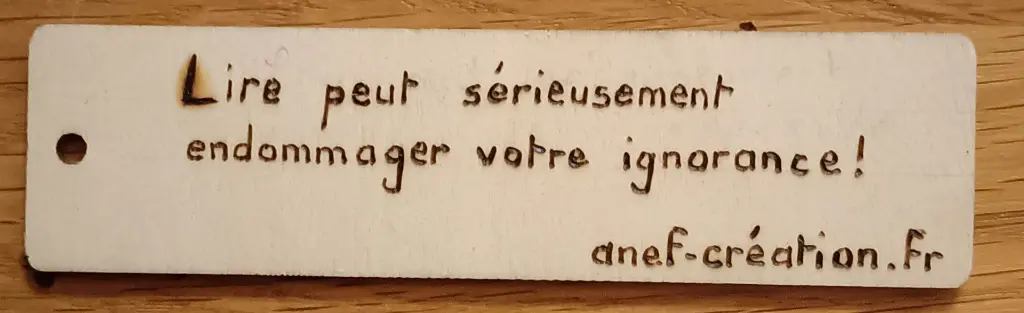 Lire peut sérieusement
endommager votre ignorance!
anef-création.fr